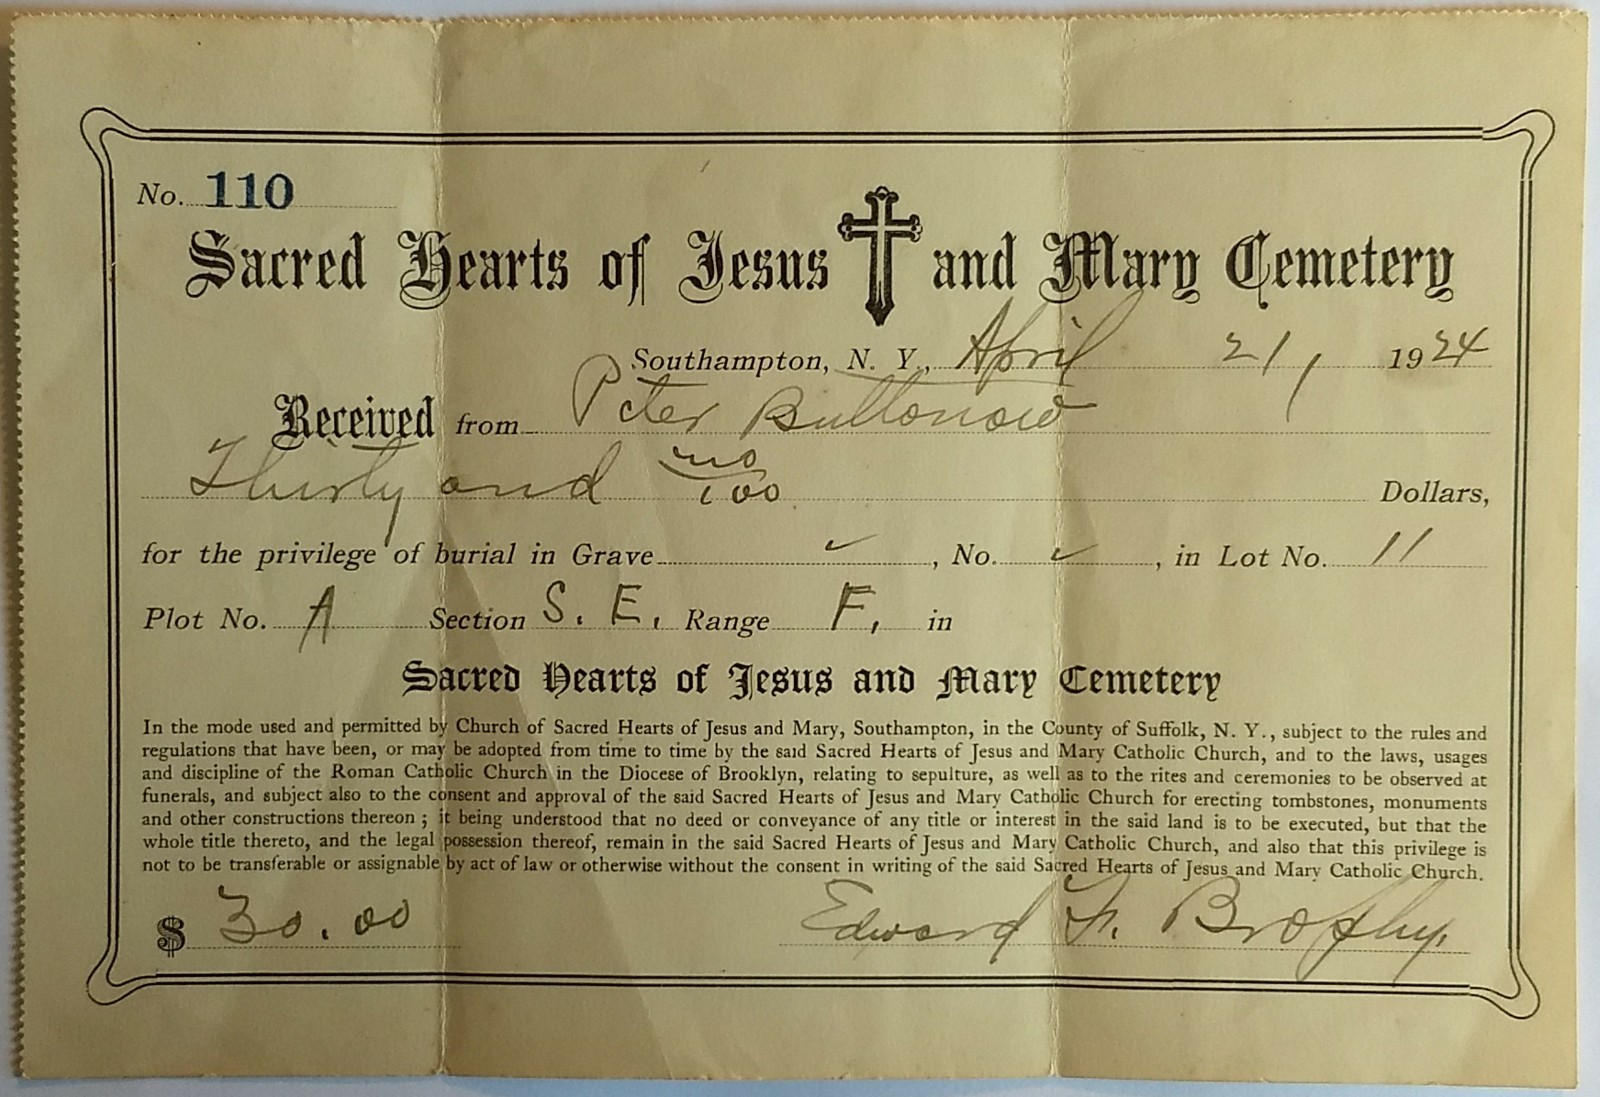 No. 110
Sacred Hearts of Jesus and Mary Cemetery
Southampton, N. Y., April 21, 1924
Received from Peter Buttonow
Thirty and no/100 Dollars,
for the privilege of burial in Grave ✓, No. ✓, in Lot No. 11
Plot No. A Section S. E. Range F, in
Sacred Hearts of Jesus and Mary Cemetery
In the mode used and permitted by Church of Sacred Hearts of Jesus and Mary, Southampton, in the County of Suffolk, N. Y., subject to the rules and
regulations that have been, or may be adopted from time to time by the said Sacred Hearts of Jesus and Mary Catholic Church, and to the laws, usages
and discipline of the Roman Catholic Church in the Diocese of Brooklyn, relating to sepulture, as well as to the rites and ceremonies to be observed at
funerals, and subject also to the consent and approval of the said Sacred Hearts of Jesus and Mary Catholic Church for erecting tombstones, monuments
and other constructions thereon ; it being understood that no deed or conveyance of any title or interest in the said land is to be executed, but that the
whole title thereto, and the legal possession thereof, remain in the said Sacred Hearts of Jesus and Mary Catholic Church, and also that this privilege is
not to be transferable or assignable by act of law or otherwise without the consent in writing of the said Sacred Hearts of Jesus and Mary Catholic Church.
$ 30.00 Edward F. Brophy.